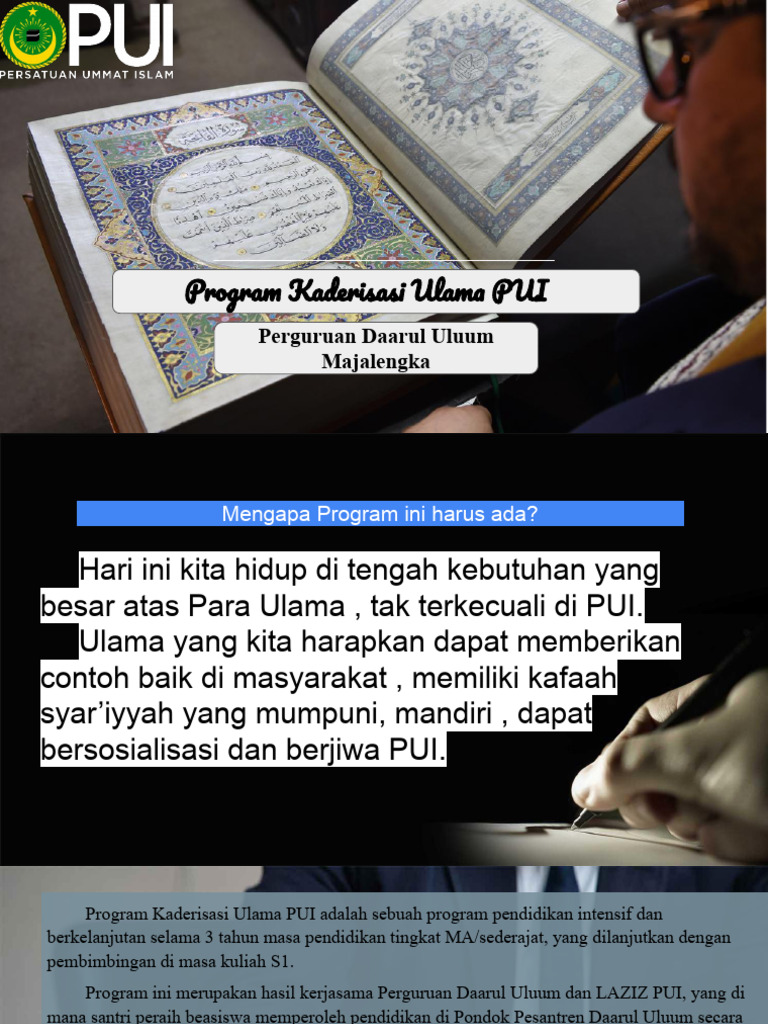 PUI
PERSATUAN UMMAT ISLAM
Program Kaderisasi Ulama PUI
Perguruan Daarul Uluum
Majalengka
Mengapa Program ini harus ada?
Hari ini kita hidup di tengah kebutuhan yang
besar atas Para Ulama , tak terkecuali di PUI.
Ulama yang kita harapkan dapat memberikan
contoh baik di masyarakat , memiliki kafaah
syar’iyyah yang mumpuni, mandiri , dapat
bersosialisasi dan berjiwa PUI.
Program Kaderisasi Ulama PUI adalah sebuah program pendidikan intensif dan
berkelanjutan selama 3 tahun masa pendidikan tingkat MA/sederajat, yang dilanjutkan dengan
pembimbingan di masa kuliah S1.
Program ini merupakan hasil kerjasama Perguruan Daarul Uluum dan LAZIZ PUI, yang di
mana santri peraih beasiswa memperoleh pendidikan di Pondok Pesantren Daarul Uluum secara